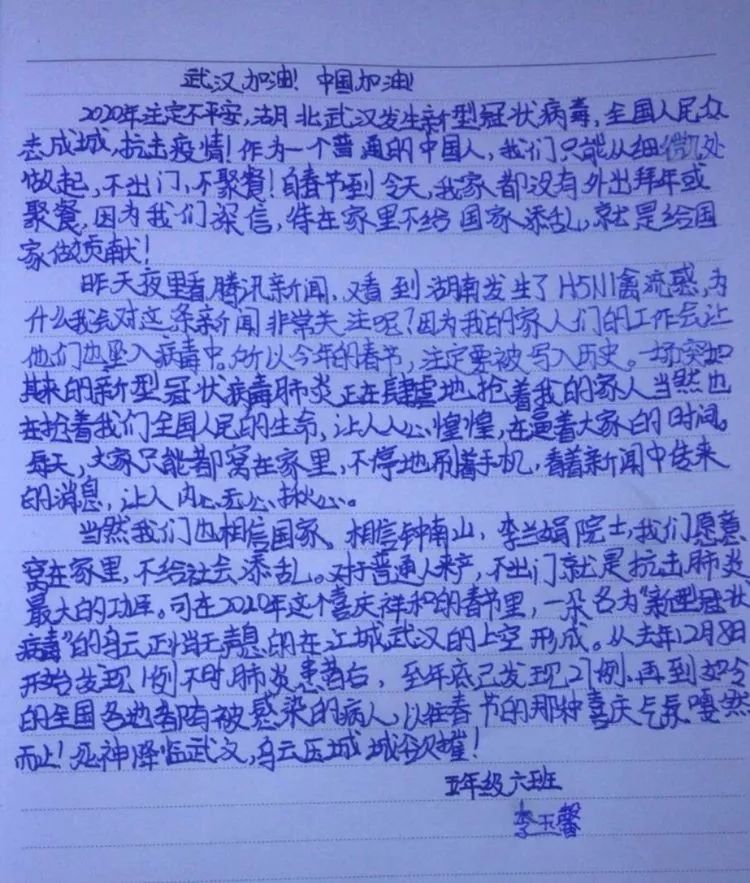 武汉加油！中国加油！
2020年注定不平安，湖北武汉发生新型冠状病毒，全国人民众
志成城，抗击疫情！作为一个普通的中国人，我们只能从细微处
做起，不出门，不聚餐！自春节到今天，我家都没有外出拜年或
聚餐，因为我们深信，待在家里不给国家添乱，就是给国
家做贡献！
昨天夜里看腾讯新闻，又看到湖南发生了H5N1禽流感，为
什么我会对这条新闻非常关注呢？因为我的家人们的工作会让
他们也坠入病毒中。所以今年的春节，注定要被写入历史。一场突如
其来的新型冠状病毒肺炎正在肆虐地抢着我的家人当然也
在抢着我们全国人民的生命，让人人心惶惶，在逼着大家的时间。
每天，大家只能都窝在家里，不停地刷着手机，看着新闻中传来
的消息，让人内心无公揪心。
当然我们也相信国家。相信钟南山，李兰娟院士，我们愿意
窝在家里，不给社会添乱。对于普通人来产，不出门就是抗击肺炎
最大的功。可在2020年这个喜庆祥和的春节里，一朵名为“新型冠状
病毒”的乌云正悄无声息的在江城武汉的上空形成。从去年12月8日
开始发现1例不明肺炎患者后，至年底已发现27例。再到如今
的全国各地都有被感染的病人，以往春节的那种喜庆气氛嘎然
而止！死神降临武汉，乌云压城城欲摧！
五年级六班
李玉馨